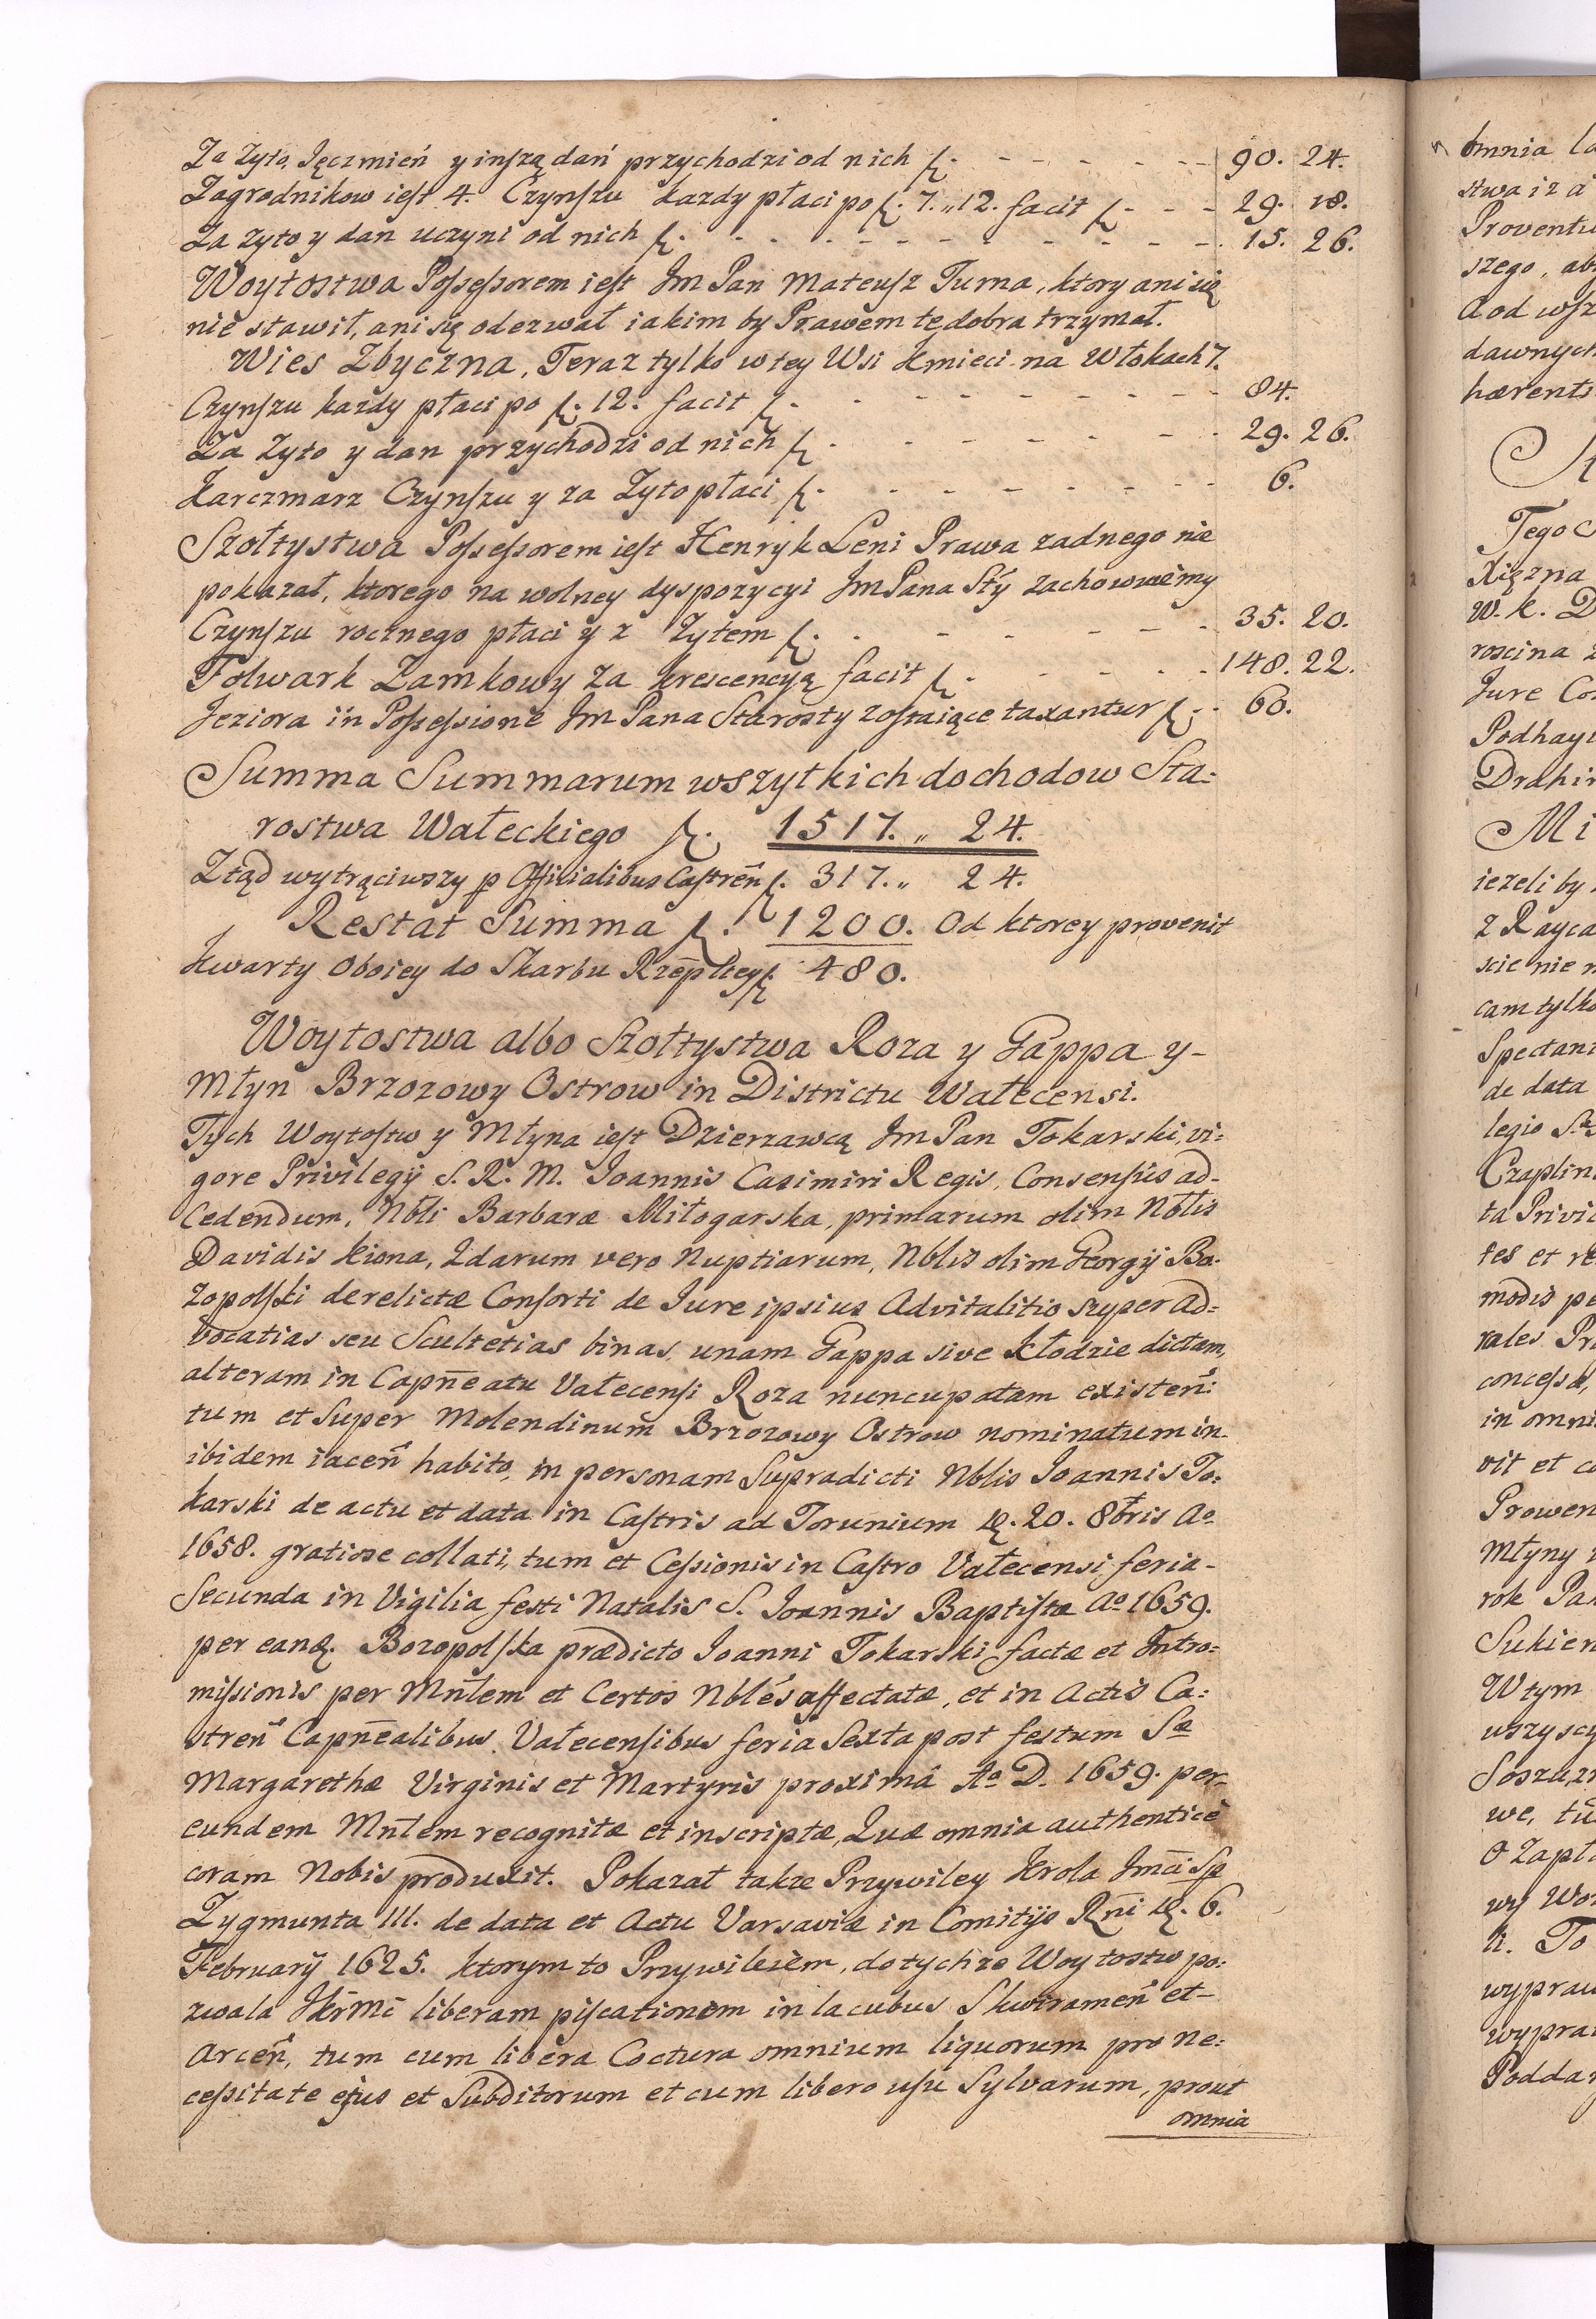 Za Zyto, Jęczmień y inszą dań przychodzi od nich f. 90. 24.
Zagrodnikow iest 4. Czynszu kazdy płaci po f. 7. „ 12. facit f. 29. 18.
Za zyto y dan uczyni od nich f. 15. 26.
Woytostwa Possessorem iest Jm Pan Mateusz Turna, ktory ani się
nie stawił, ani się odezwał iakim by Prawem te dobra trzymał.
Wies Zbyczna, Teraz tylko w tey Wsi Kmieci na Włokach 7.
Czynszu kazdy płaci po f. 12. facit f. 84.
Za Zyto y dan przychodzi od nich f. 29. 26.
Karczmarz Czynszu y za Zyto płaci f. 6.
Szołtystwa Possessorem iest Henryk Leni Prawa zadnego nie
pokazał, ktorego na wolney dyspozycyi Jm Pana Sty zachowuiemy
Czynszu rocznego płaci y z Zytem f. 35. 20.
Folwark Zamkowy za krescencyą facit f. 148. 22.
Jeziora in Possessione Jm Pana Starosty zostaiące taxantur f. 60.
Summa Summarum wszytkich dochodow Sta:
rostwa Wałeckiego f. 1517. „ 24.
Ztąd wytrąciwszy p Officialibus Castren̄ f. 317. „ 24.
Restat Summa f. 1200. Od ktorey provenit
Kwarty Oboiey do Skarbu Rzēpltey f. 480.
Woytostwa albo Szołtystwa Roza y Gappa y-
Młyn Brzozowy Ostrow in Districtu Wałecensi.
Tych Woytostw y Młyna iest Dzierzawcą Jm Pan Tokarski, vi:
gore Privilegÿ S. R. M. Joannis Casimiri Regis, Consensûs ad-
Cedendum, Nbli Barbaræ Miłogarska, primarum olim Nblis
Davidis Kiona, 2darum vero Nuptiarum, Nblis olim Georgÿ Bo-
zopolski derelictæ Consorti de Jure ipsius Advitalitio super Ad=
vocatias seu Scultetias binas, unam Gappa sive Kłodzie dictam,
alteram in Capn̄eatu Vałecensi Roza nuncupatam existen̄:
tum et Super Molendinum Brzozowy Ostrow nominatum in-
ibidem iacen̄ habito, in personam Supradicti Nblis Joannis To:
karski de actu et data in Castris ad Torunium D. 20. 8bris Ao
1658. gratiose collati, tum et Cessionis in Castro Vałecensi feria-
Secunda in Vigilia festi Natalis S. Joannis Baptistæ Ao 1659.
per eandq. Bozopolska prædicto Joanni Tokarski factæ et Intro:
missionis per Mn̄lem et Certos Nblés affectatæ, et in Actis Ca:
stren̄ Capn̄ealibus Vałecensibus feria Sexta post festum Sæ
Margarethæ Virginis et Martyris proximâ Ao D. 1659. per-
eundem Mn̄lem recognitæ et inscriptæ, Quæ omnia authenticè
coram Nobis produxit. Pokazał takze Przywiley Krola Jmci Sp
Zygmunta III. de data et Actu Varsaviæ in Comitÿs Rn̄i D. 6.
Februarÿ 1625. ktorym to Przywileiem, do tychze Woytostw po:
zwala JKrmć liberam piscationem in lacubus Skwiramen̄ et-
Arcen̄, tum cum libera Coctura omnium liquorum pro ne:
cessitate ejus et Subditorum et cum libero usu Sylvarum, prout
omnia